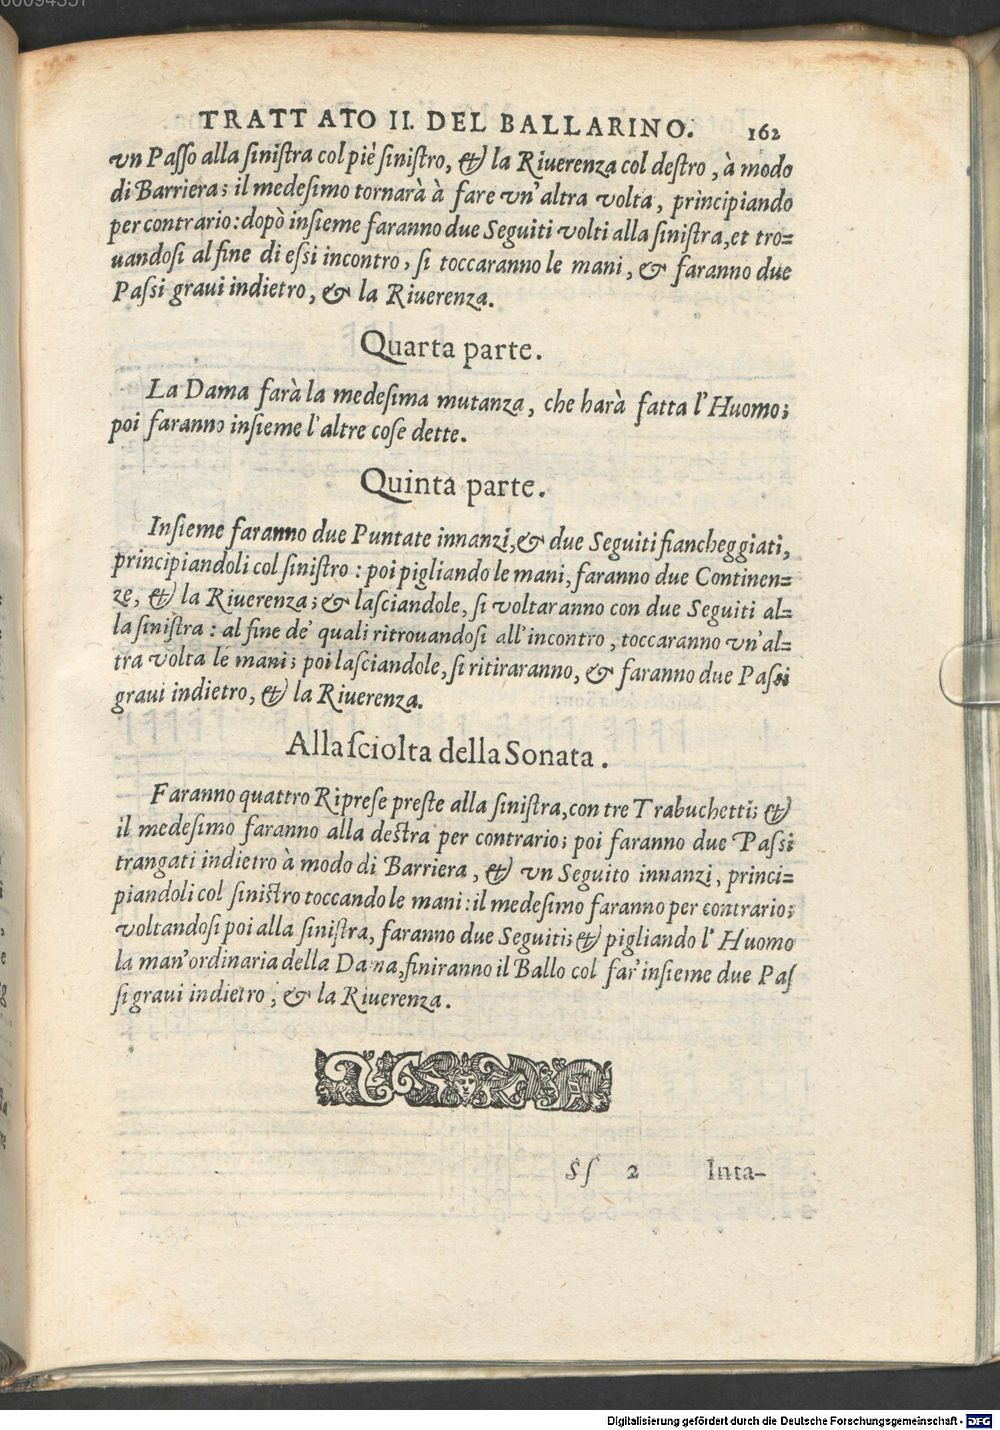 TRATTATO II. DEL BALLARINO. 162
vn Paſſo alla ſiniſtra col piè ſiniſtro, & la Riuerenza col deſtro, à modo
di Barriera; il medeſimo tornarà à fare vn'altra volta, principiando
per contrario: dopò inſieme faranno due Seguiti volti alla ſiniſtra, et tro=
uandoſi al fine di eſsi incontro, ſi toccaranno le mani, & faranno due
Paſsi graui indietro, & la Riuerenza.
Quarta parte.
La Dama farà la medeſima mutanza, che harà fatta l'Huomo;
poi faranno inſieme l'altre coſe dette.
Quinta parte.
Inſieme faranno due Puntate innanzi, & due Seguiti fiancheggiati,
principiandoli col ſiniſtro: poi pigliando le mani, faranno due Continen=
ze, & la Riuerenza; & laſciandole, ſi voltaranno con due Seguiti al=
la ſiniſtra: al fine de' quali ritrouandoſi all'incontro, toccaranno vn'al=
tra volta le mani; poi laſciandole, ſi ritiraranno, & faranno due Paſsi
graui indietro, & la Riuerenza.
Alla ſciolta della Sonata.
Faranno quattro Ripreſe preſte alla ſiniſtra, con tre Trabuchetti; &
il medeſimo faranno alla deſtra per contrario; poi faranno due Paſsi
trangati indietro à modo di Barriera, & vn Seguito innanzi, princi=
piandoli col ſiniſtro toccando le mani: il medeſimo faranno per contrario;
voltandoſi poi alla ſiniſtra, faranno due Seguiti; & pigliando l'Huomo
la man'ordinaria della Dama, finiranno il Ballo col far'inſieme due Paſ
ſi graui indietro, & la Riuerenza.
Sſ 2 Inta-
Digitalisierung gefördert durch die Deutsche Forschungsgemeinschaft - DFG